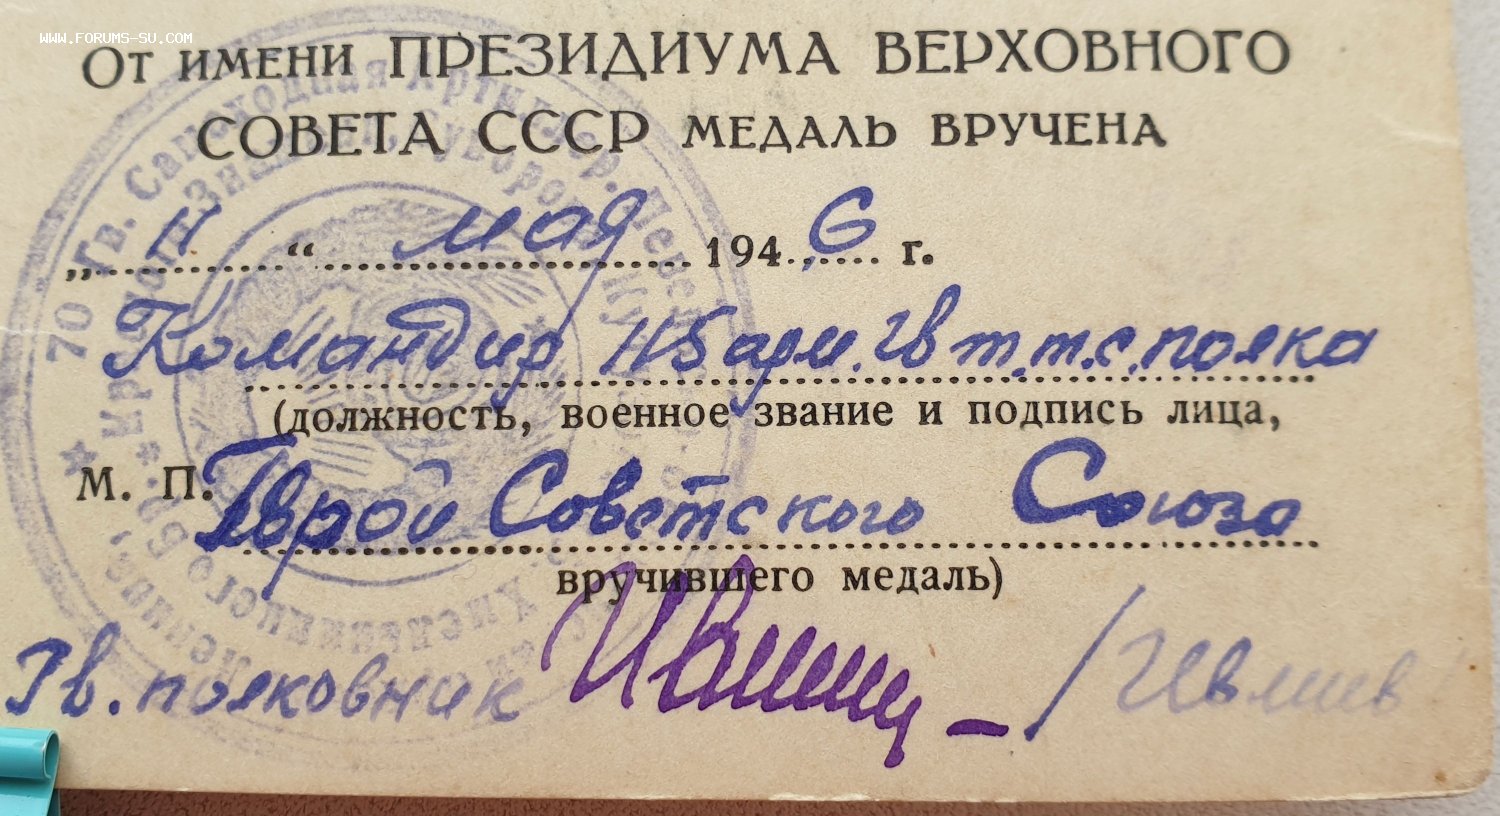 WWW.FORUMS-SU.COM
От имени ПРЕЗИДИУМА ВЕРХОВНОГО
СОВЕТА СССР МЕДАЛЬ ВРУЧЕНА
„ 11 “ мая 194 6 г.
Командир 115 арм. гв т.т.с. полка
(должность, военное звание и подпись лица,
М. П. Герой Советского Союза
вручившего медаль)
Гв. полковник - / Ивлиев
70 Гв. Самоходная Артиллер. Невельс